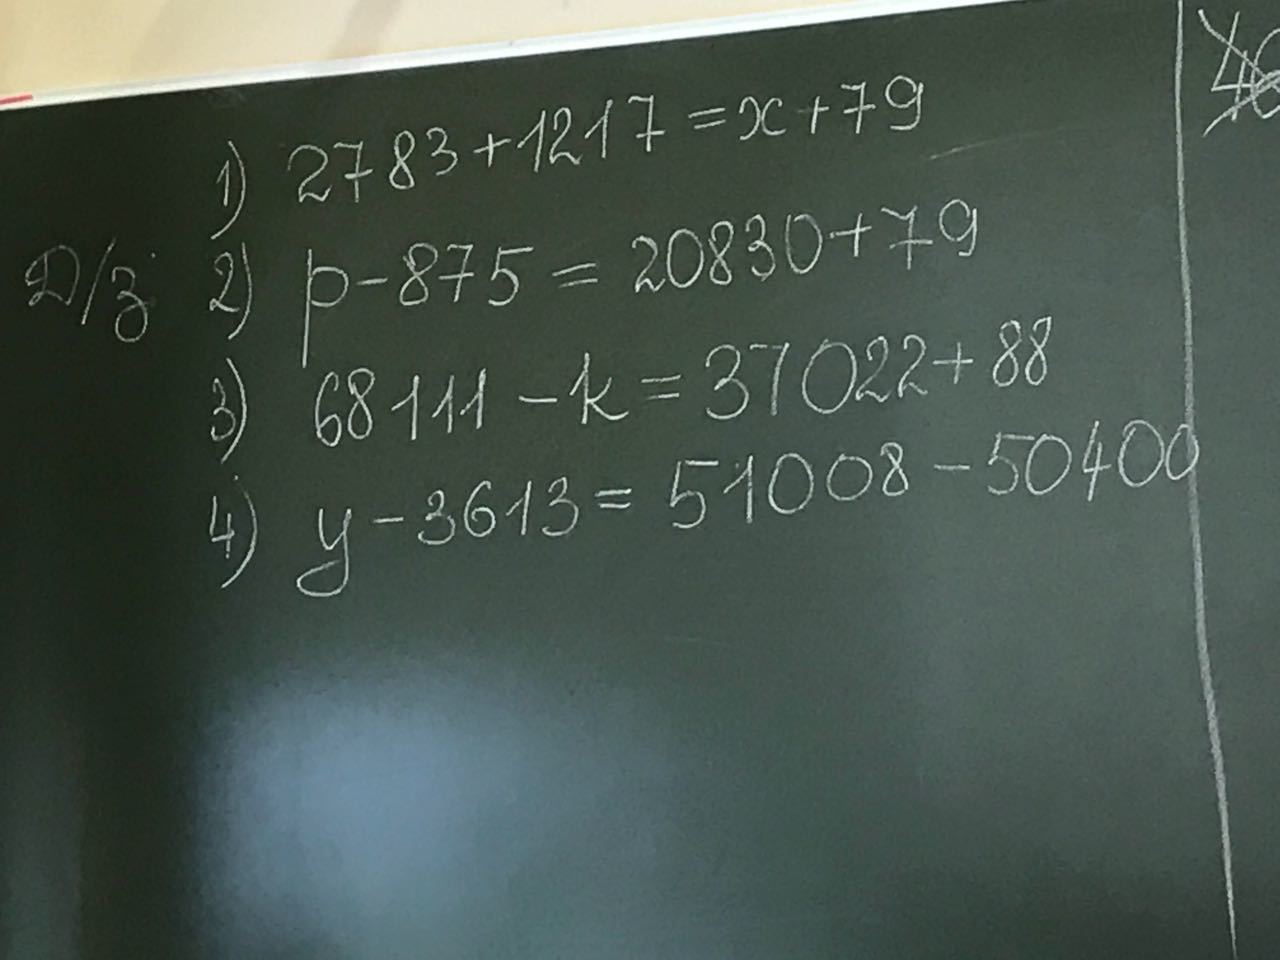 1) 2783+1217=x+79
Д/з. 2) p-875=20830+79
3) 68111-k=37022+88
4) y-3613=51008-50400